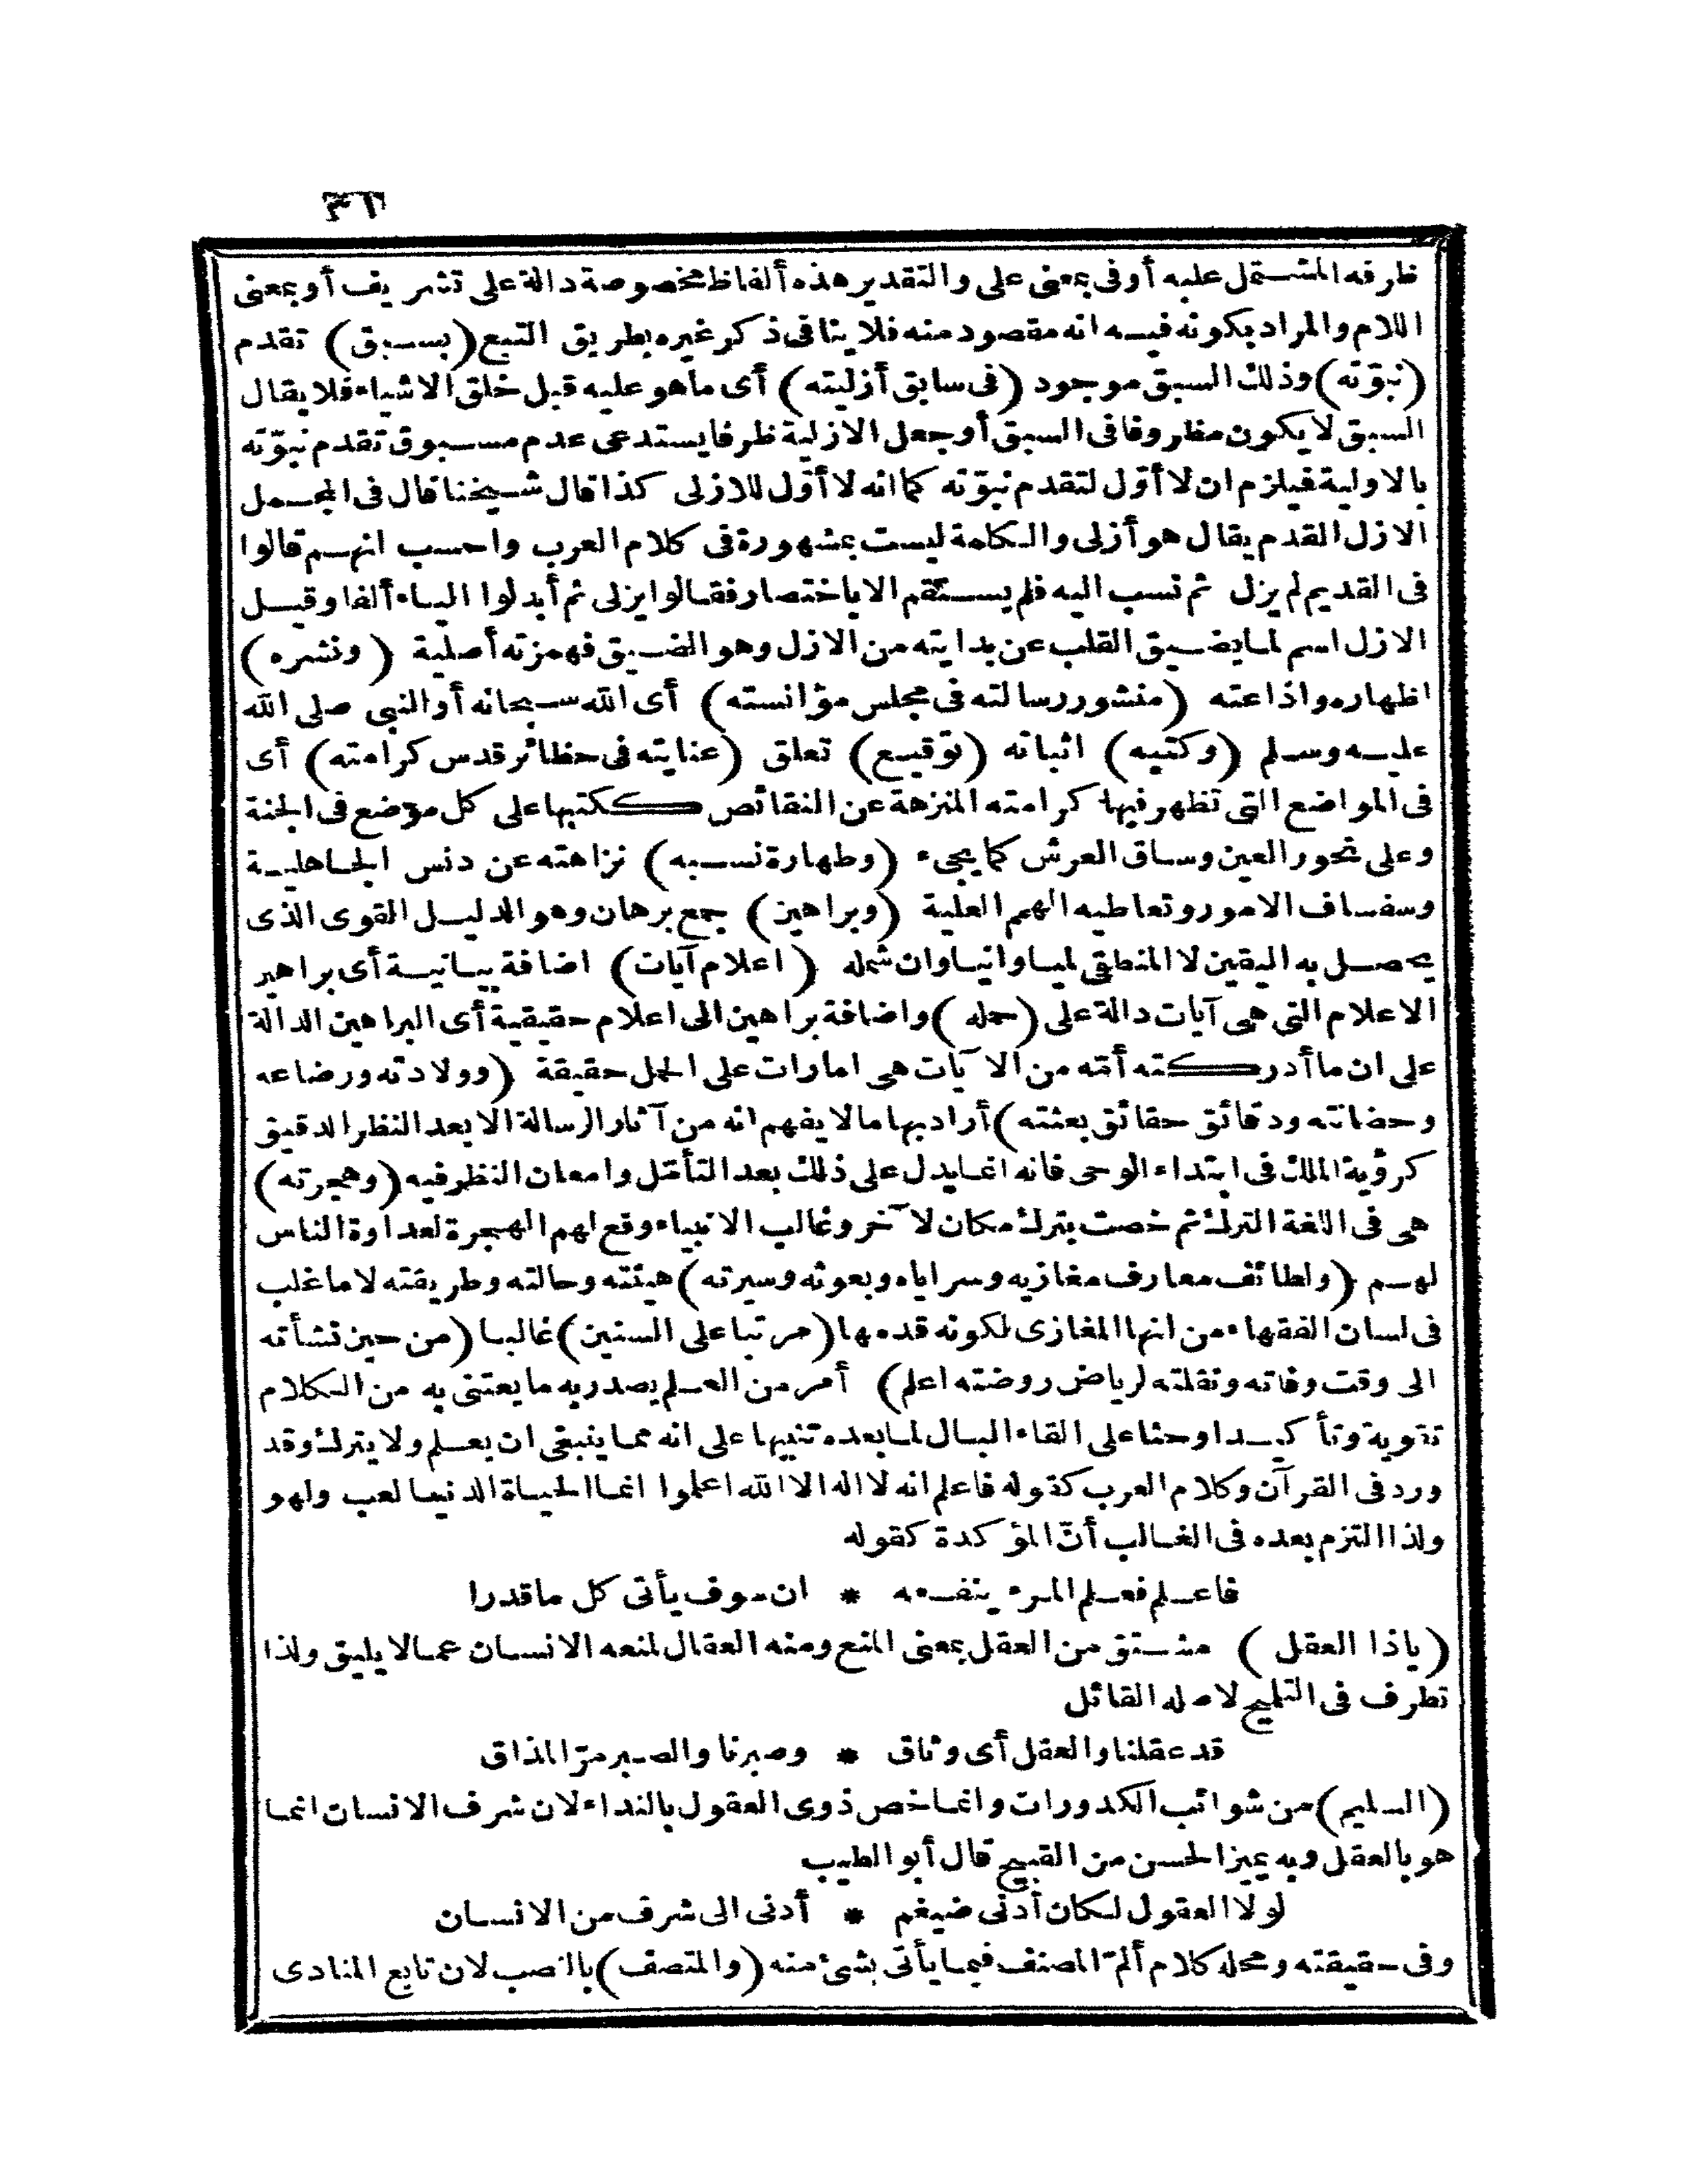 ظرفه المشتمل عليه أو في بمعنى على والتقدير هذه ألفاظ مخصوصة دالة على تشريف أو بمعنى
اللام والمراد بكونه فيه انه مقصود منه فلا ينافى ذكر غيره بطريق التبع (بسبق) تقدم
(نبوّته) وذلك السبق موجود (فى سابق أزليته) أى ماهو عليه قبل خلق الاشياء فلا يقال
السبق لا يكون مظروفا فى السبق أو جعل الازلية ظرفا يستدعى عدم مسبوق تقدم نبوّته
بالاولية فيلزم ان لا أوّل لتقدم نبوّته كما انه لا أوّل للازلى كذا قال شيخنا قال فى المجمل
الازل القدم يقال هو أزلى والكلمة ليست بمشهورة فى كلام العرب واحسب انهم قالوا
فى القديم لم يزل ثم نسب اليه فلم يستقم الا باختصار فقالوا يزلى ثم أبدلوا الياء ألفا وقيل
الازل اسم لما يضيق القلب عن بدايته من الازل وهو الضيق فهمزته أصلية (ونشره)
اظهاره واذاعته (منشور رسالته فى مجلس مؤانسته) أى الله سبحانه أو النبى صلى الله
عليه وسلم (وكتبه) اثباته (توقيع) تعلق (عنايته فى حظائر قدس كرامته) أى
فى المواضع التى تظهر فيها كرامته المنزهة عن النقائص ككتبها على كل موضع فى الجنة
وعلى نحور العين وساق العرش كما يجىء (وطهارة نسبه) نزاهته عن دنس الجاهلية
وسفساف الامور وتعاطيه الهمم العلية (وبراهين) جمع برهان وهو الدليل القوى الذى
يحصل به اليقين لا المنطقى لميا وانيا وان شمله (اعلام آيات) اضافة بيانية أى براهين
الاعلام التى هى آيات دالة على (حمله) واضافة براهين الى اعلام حقيقية أى البراهين الدالة
على ان ما أدركته أمّه من الآيات هى امارات على الحمل حقيقة (وولادته ورضاعه
وحضانته ودقائق حقائق بعثته) أراد بها مالا يفهم انه من آثار الرسالة الا بعد النظر الدقيق
كرؤية الملك فى ابتداء الوحى فانه انما يدل على ذلك بعد التأمّل وامعان النظر فيه (وهجرته)
هى فى اللغة الترك ثم خصت بترك مكان لآخر وغالب الانبياء وقع لهم الهجرة لعداوة الناس
لهم (ولطائف معارف مغازيه وسراياه وبعوثه وسيرته) هيئته وحالته وطريقته لا ما غلب
فى لسان الفقهاء من انها المغازى لكونه قدمها (مرتبا على السنين) غالبا (من حين نشأته
الى وقت وفاته ونقلته لرياض روضته اعلم) أمر من العلم يصدر به ما يعتنى به من الكلام
تقوية وتأكيدا وحثا على القاء البال لما بعده تنبيها على انه مما ينبغى ان يعلم ولا يترك وقد
ورد فى القرآن وكلام العرب كقوله فاعلم انه لا اله الا الله اعلموا انما الحياة الدنيا لعب ولهو
ولذا التزم بعده فى الغالب أنّ المؤكدة كقوله
فاعلم فعلم المرء ينفعه * ان سوف يأتى كل ما قدرا
(ياذا العقل) مشتق من العقل بمعنى المنع ومنه العقال لمنعه الانسان عما لا يليق ولذا
تطرف فى التلميح لاصله القائل
قد عقلنا والعقل أى وثاق * وصبرنا والصبر مرّ المذاق
(السليم) من شوائب الكدورات وانما خص ذوى العقول بالنداء لان شرف الانسان انما
هو بالعقل وبه يميز الحسن من القبيح قال أبو الطيب
لولا العقول لكان أدنى ضيغم * أدنى الى شرف من الانسان
وفى حقيقته ومحله كلام ألمّ المصنف فيما يأتى بشئ منه (والمتصف) بالنصب لان تابع المنادى